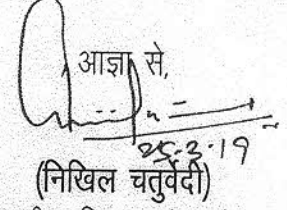 आज्ञा से,
25-3-19
(निखिल चतुर्वेदी)